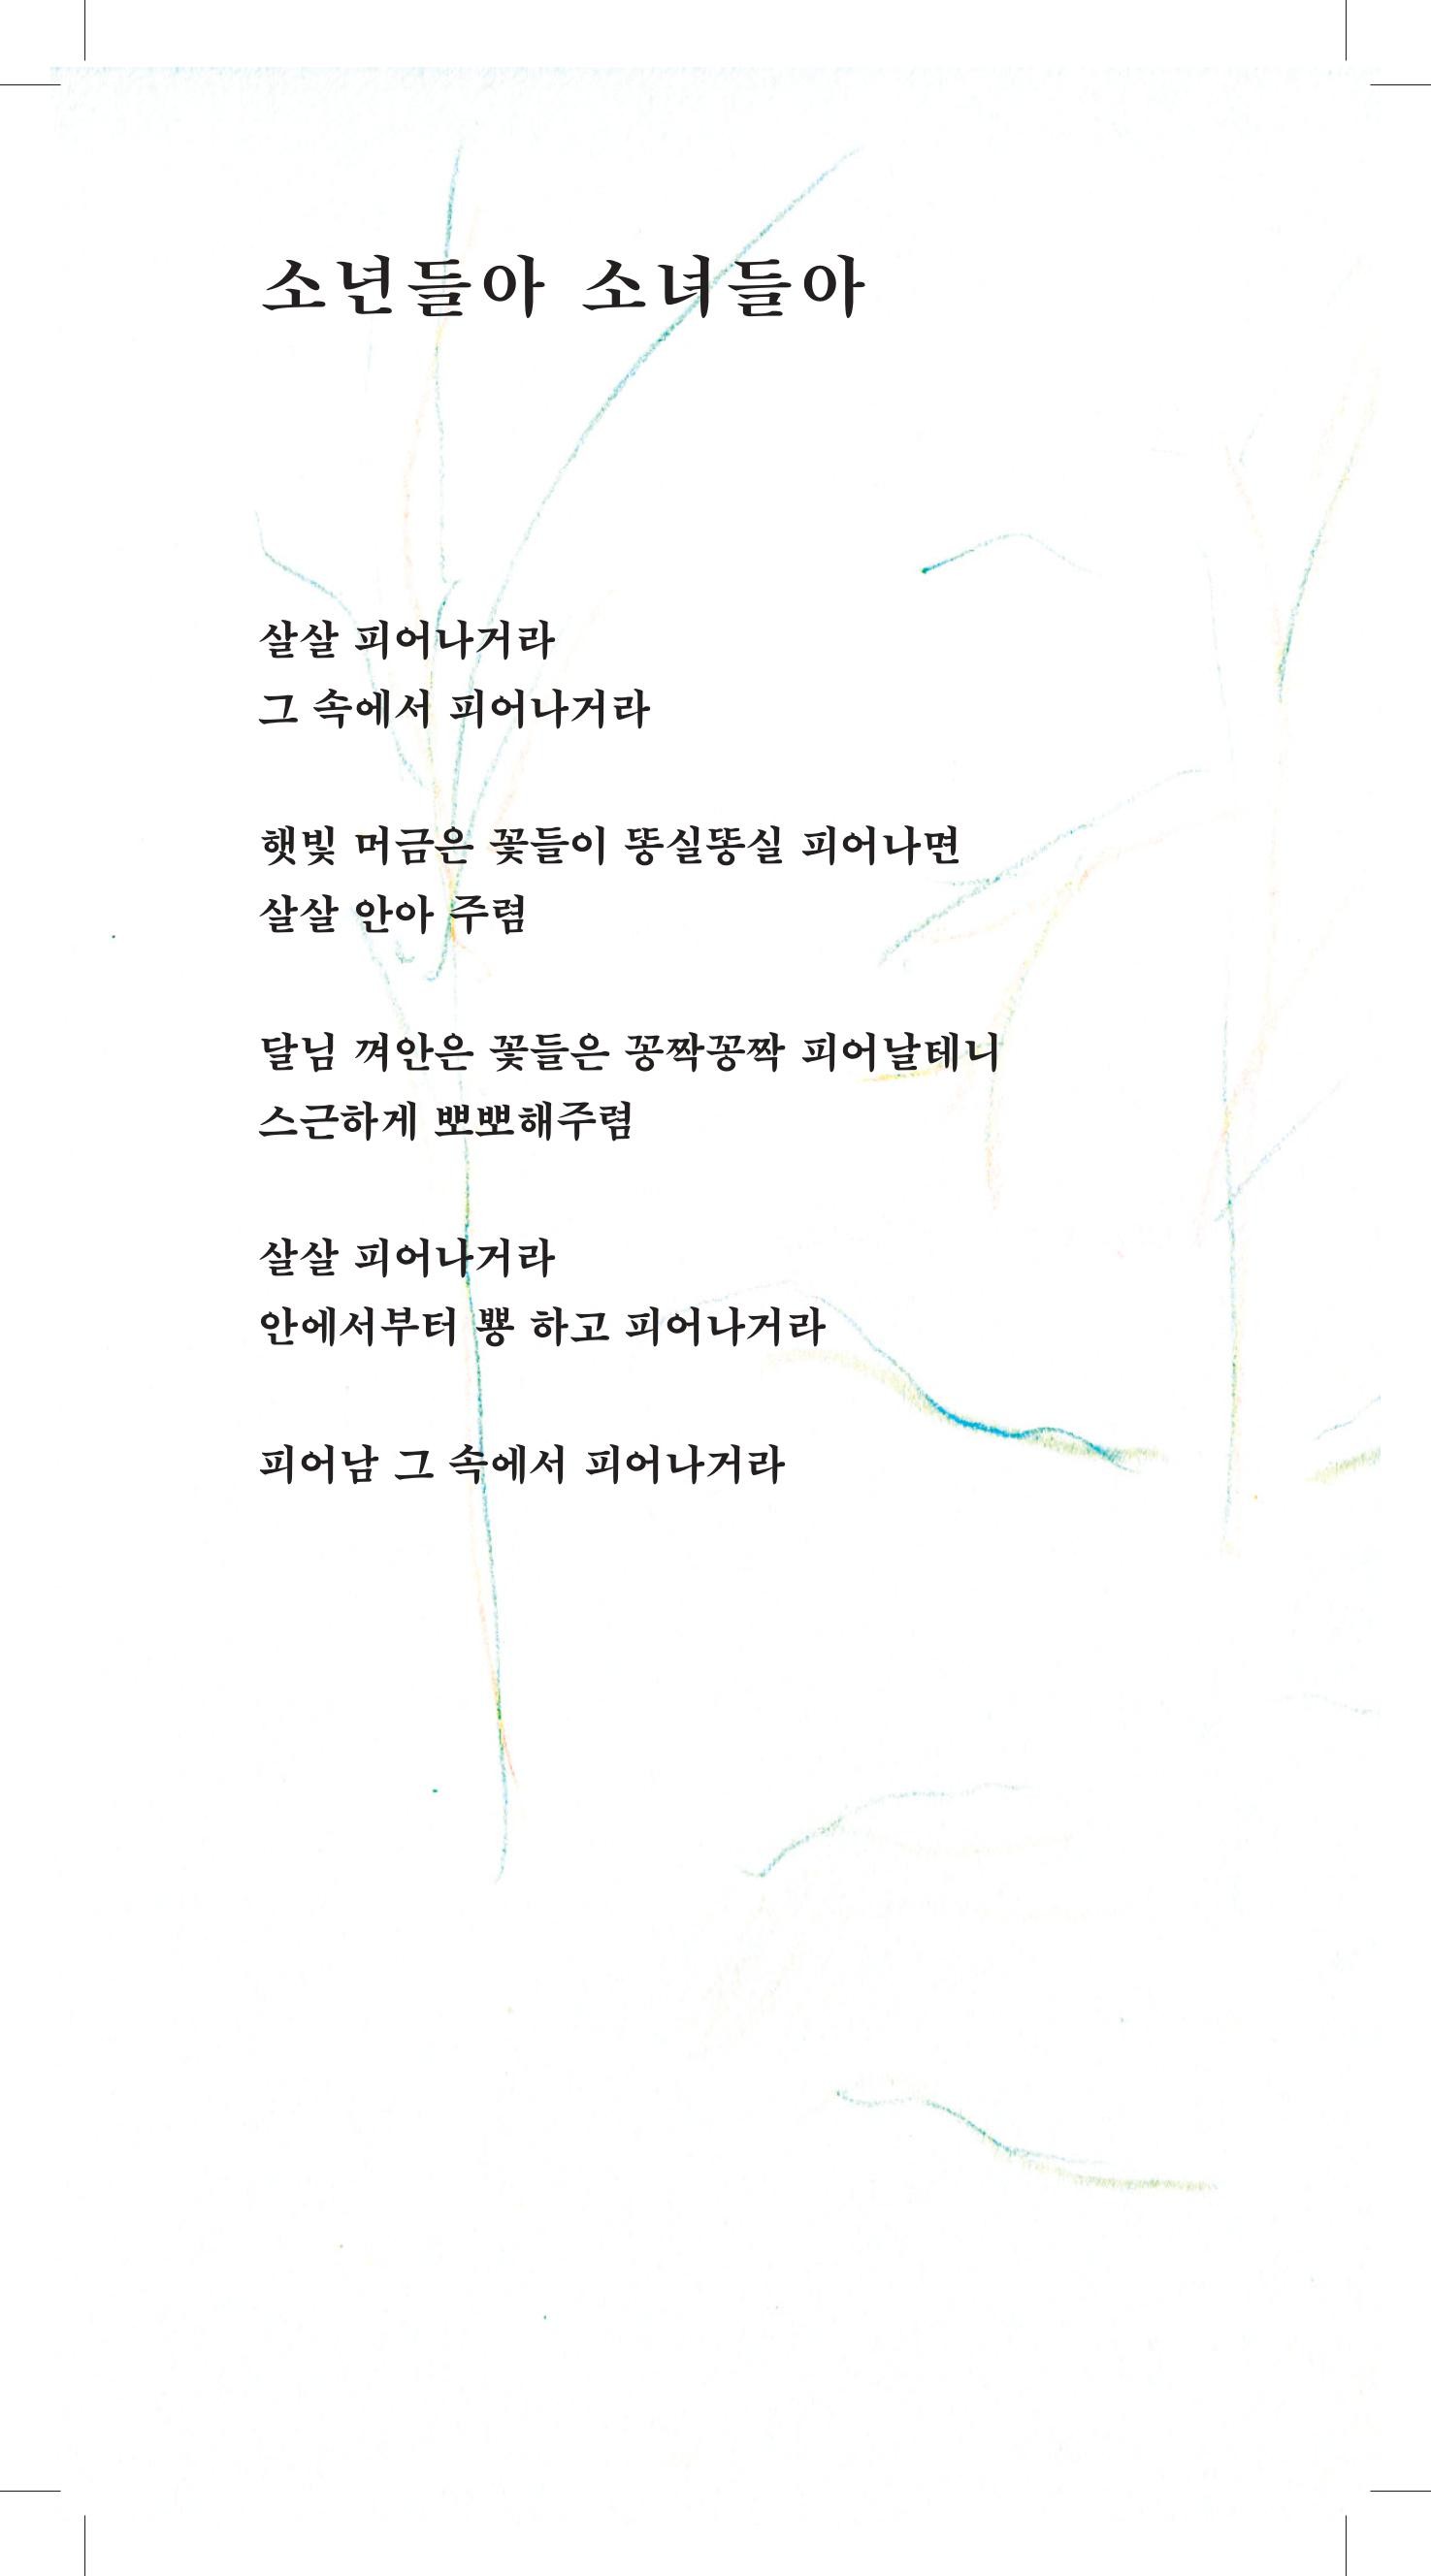 소년들아 소녀들아
살살 피어나거라
그 속에서 피어나거라
햇빛 머금은 꽃들이 똥실똥실 피어나면
살살 안아 주렴
달님 껴안은 꽃들은 꽁짝꽁짝 피어날테니
스근하게 뽀뽀해주렴
살살 피어나거라
안에서부터 뿅 하고 피어나거라
피어남 그 속에서 피어나거라